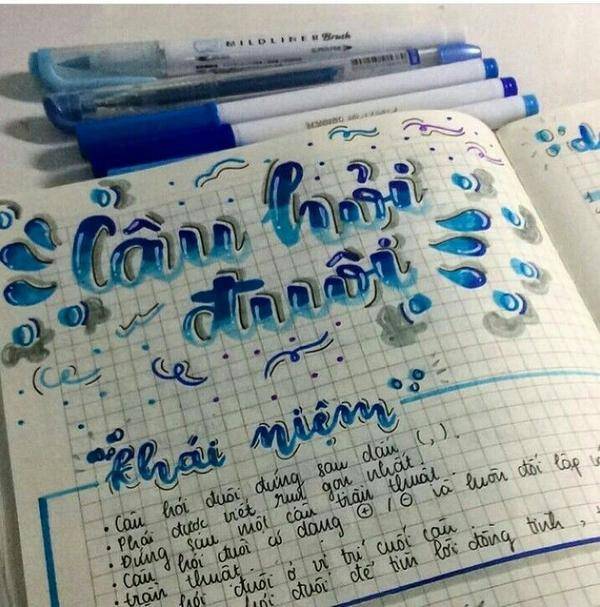 MILDLINER Brush
Câu hỏi
đuôi
khái niệm
• Câu hỏi đuôi đứng sau dấu (,).
• Phải được viết rút gọn nhất.
• Đứng sau một câu trần thuật.
• Câu hỏi đuôi có dạng ⊕/⊖ và luôn đối lập
trần thuật.
hỏi đuôi ở vị trí cuối câu
hỏi đuôi để tìm lời đồng tình,